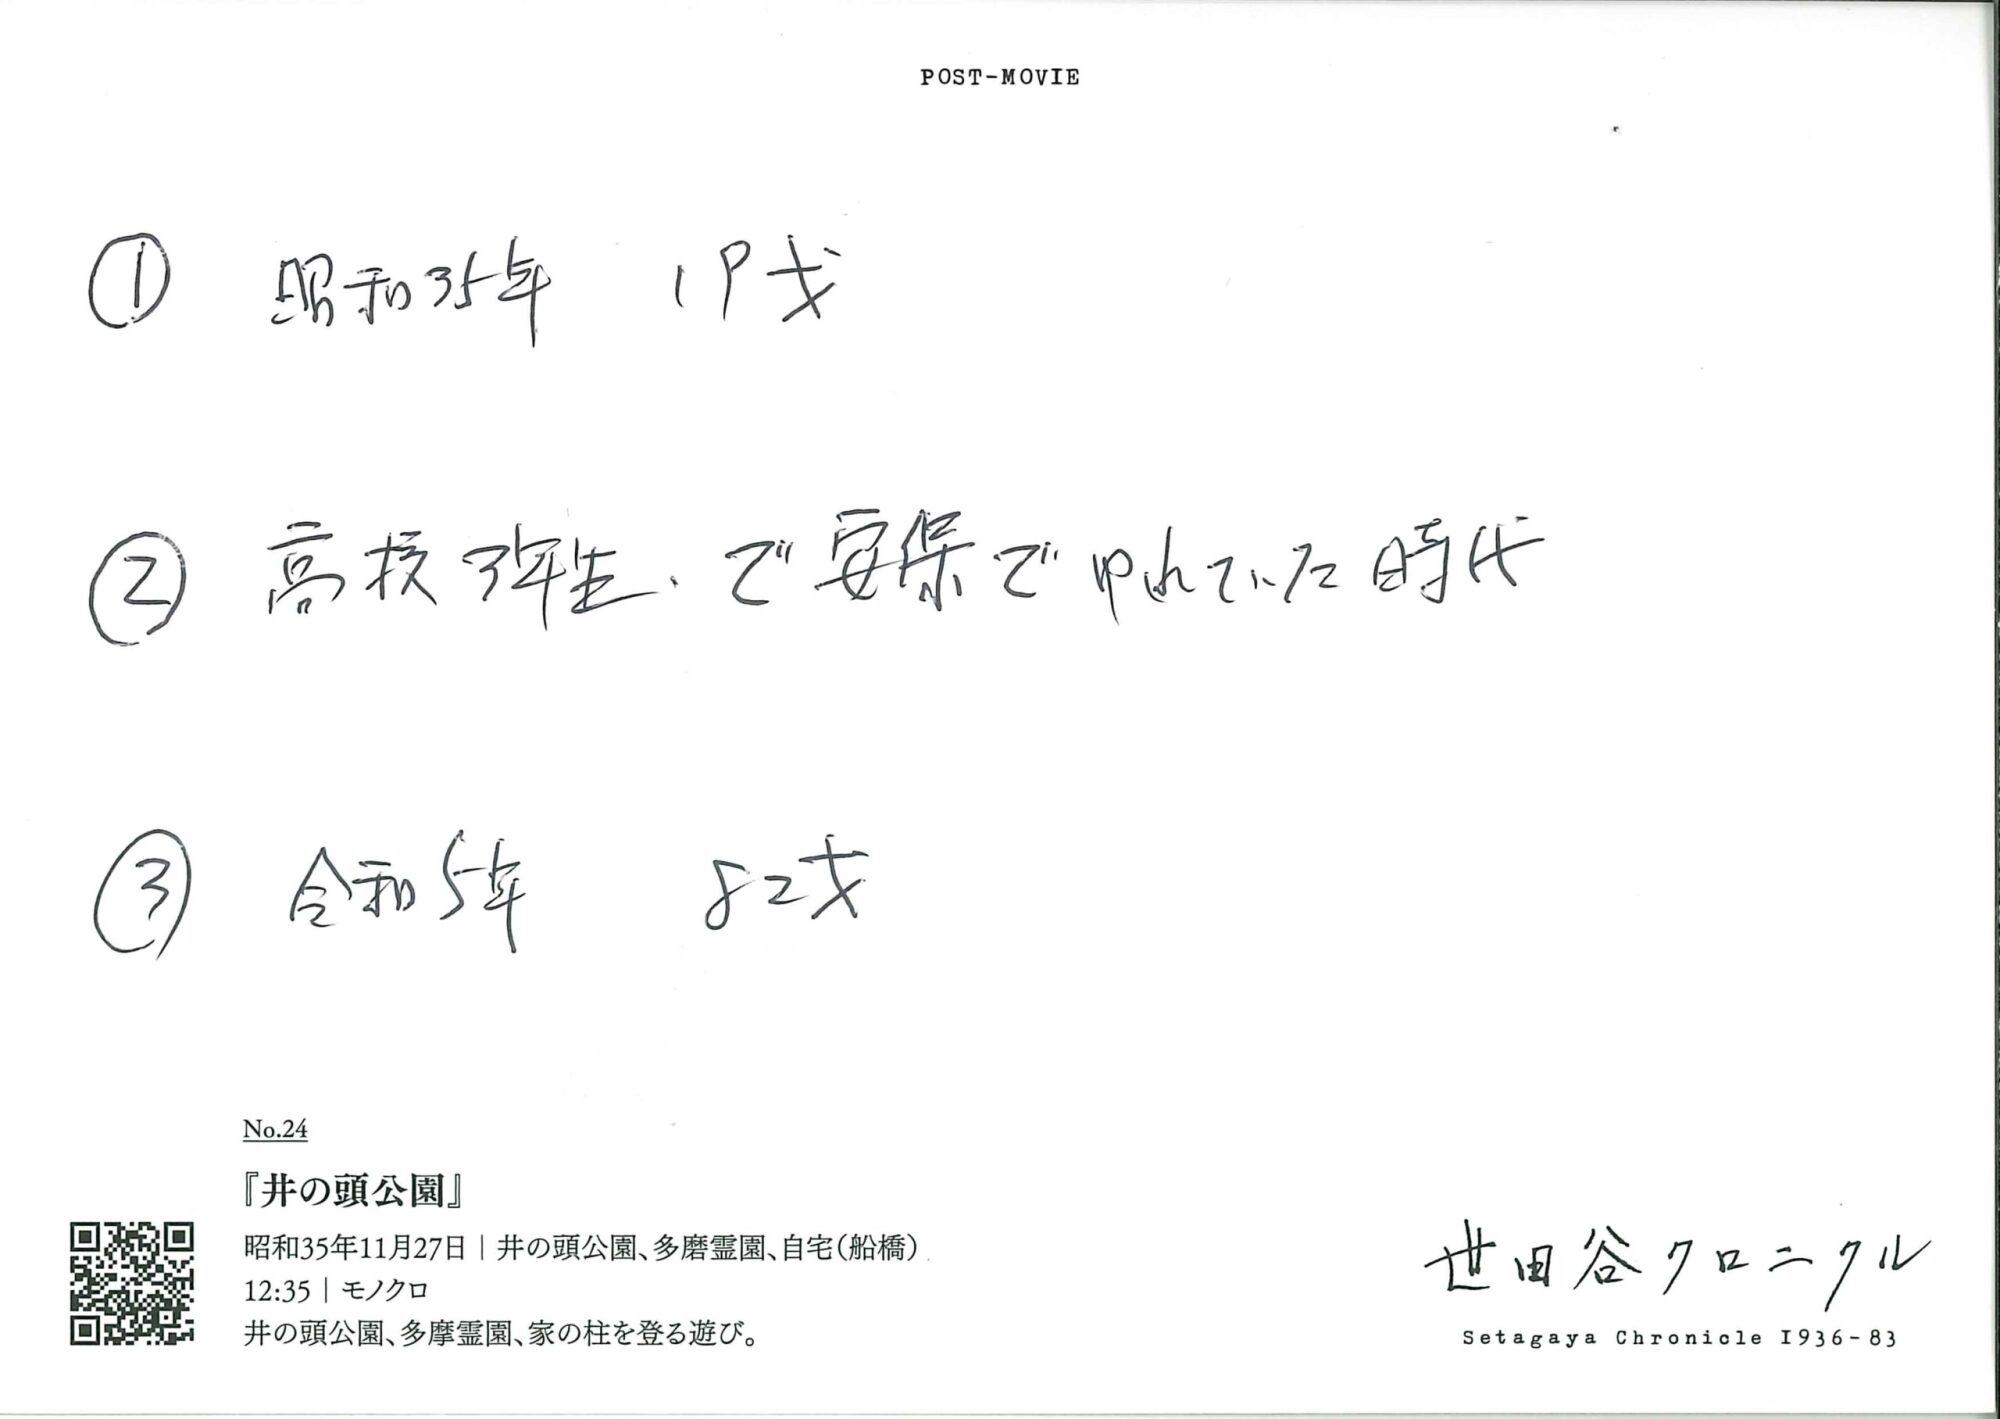 POST-MOVIE
① 昭和35年 19才
② 高校3年生.で安保でゆれていた時代
③ 令和5年 82才
No.24
『井の頭公園』
昭和35年11月27日｜井の頭公園、多磨霊園、自宅（船橋）
12:35｜モノクロ
井の頭公園、多摩霊園、家の柱を登る遊び。
世田谷クロニクル
Setagaya Chronicle 1936-83